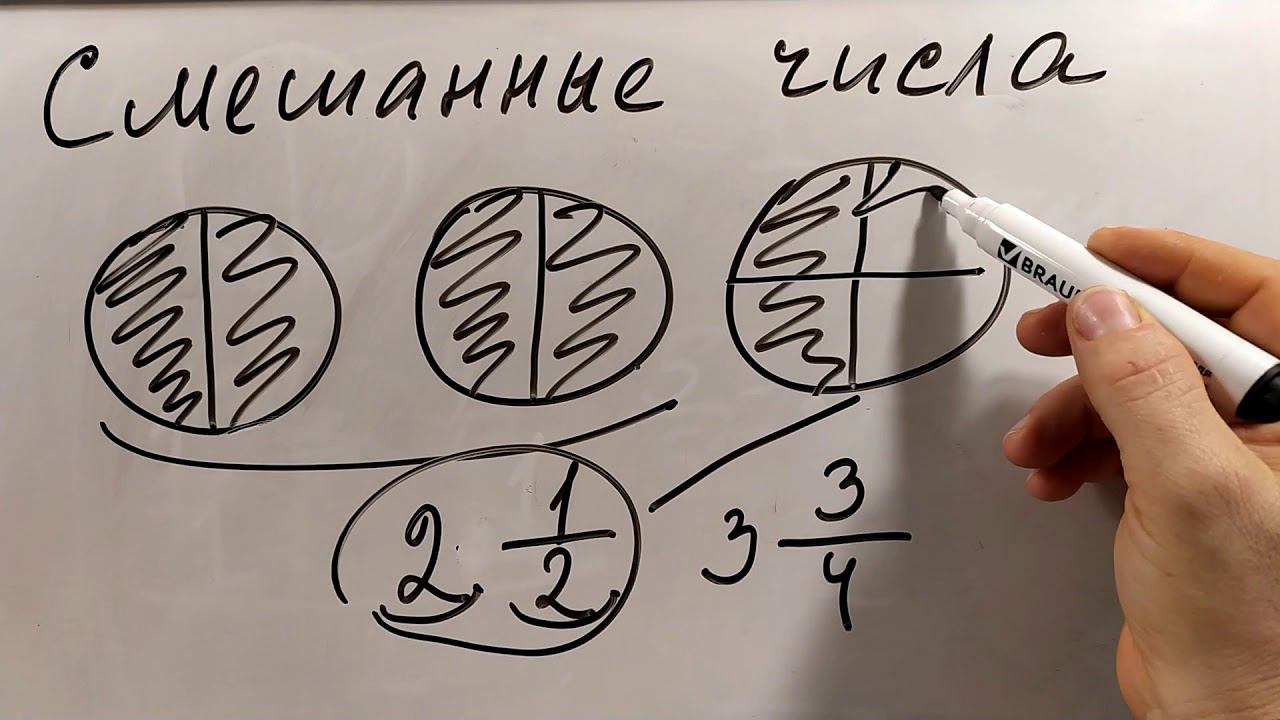 Смешанные числа
BRAU
2 1/2 3 3/4